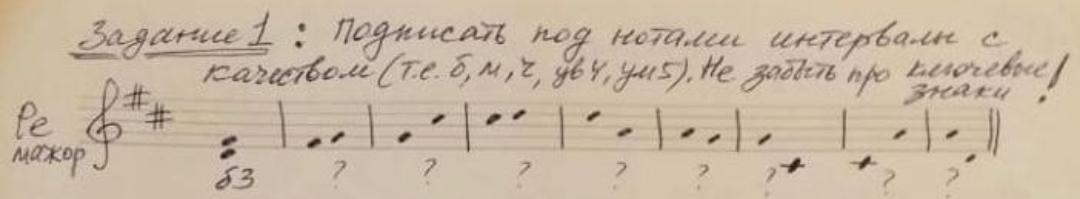 Задание 1 : Подписать под нотами интервалы с
качеством (т.е. б, м, ч, ув4, ум5). Не забыть про ключевые
знаки!
Ре
мажор
б3 ? ? ? ? ? ? ? ?